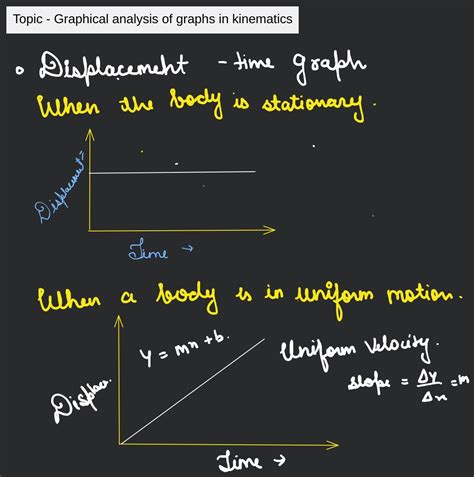 Topic - Graphical analysis of graphs in kinematics
Displacement - time graph
When the body is stationary.
Displacement
Time →
When a body is in uniform motion.
y = mx + b.
Uniform Velocity.
slope = Δy/Δx = m
Displac.
Time →